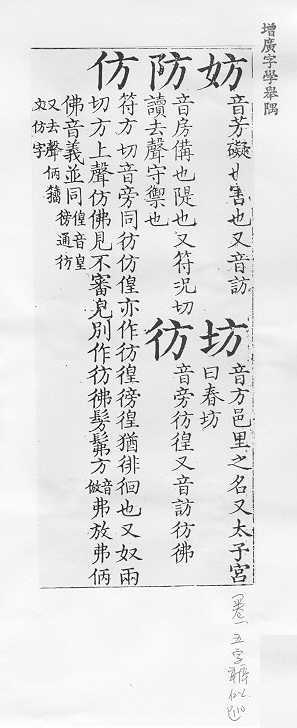 增廣字學舉隅
妨
音芳礙也害也又音訪
坊
音方邑里之名又太子宮
曰春坊
防
音房備也隄也又符況切
讀去聲守禦也
彷
音旁彷徨又音訪彷彿
仿
符方切音旁同彷仿偟亦作彷徨徬徨猶徘徊也又奴兩
切方上聲仿佛見不審皃別作彷彿髣髴方音倣弗放弗
佛音義並同偟音皇徬通彷
又去聲籀
文仿字